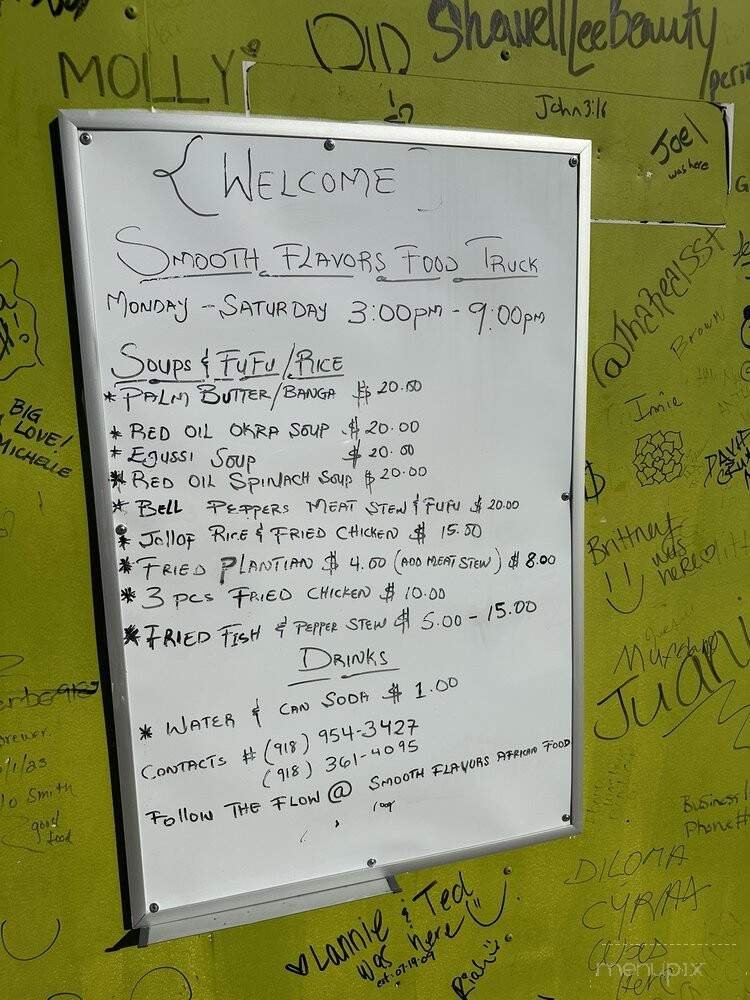 MOLLY
DID
ShawellLeeBeauty
John 3:16
Joel
was here
{ WELCOME
SMOOTH FLAVORS FOOD TRUCK
MONDAY - SATURDAY 3:00pm - 9:00pm
SOUPS & FUFU/RICE
* PALM BUTTER/BANGA $ 20.00
* RED OIL OKRA SOUP $ 20.00
* EJUSSI SOUP $ 20.00
* RED OIL SPINACH SOUP $ 20.00
* BELL PEPPERS MEAT STEW & FUFU $ 20.00
* JOLLOF RICE & FRIED CHICKEN $ 15.00
* FRIED PLANTIAN $ 4.00 (ADD MEAT STEW) $ 8.00
* 3 PCS FRIED CHICKEN $ 10.00
* FRIED FISH & PEPPER STEW $ 5.00 - 15.00
DRINKS
* WATER & CAN SODA $ 1.00
CONTACTS # (918) 954-3427
(918) 361-4095
FOLLOW THE FLOW @ SMOOTH FLAVORS AFRICAN FOOD
BIG
LOVE!
MICHELLE
Brown
Innie
Brittney
was
here
Juani
Smith
good
food
Business
Phone#
DILOMA
Lannie & Ted
was here
est. 07.19.09
menupix